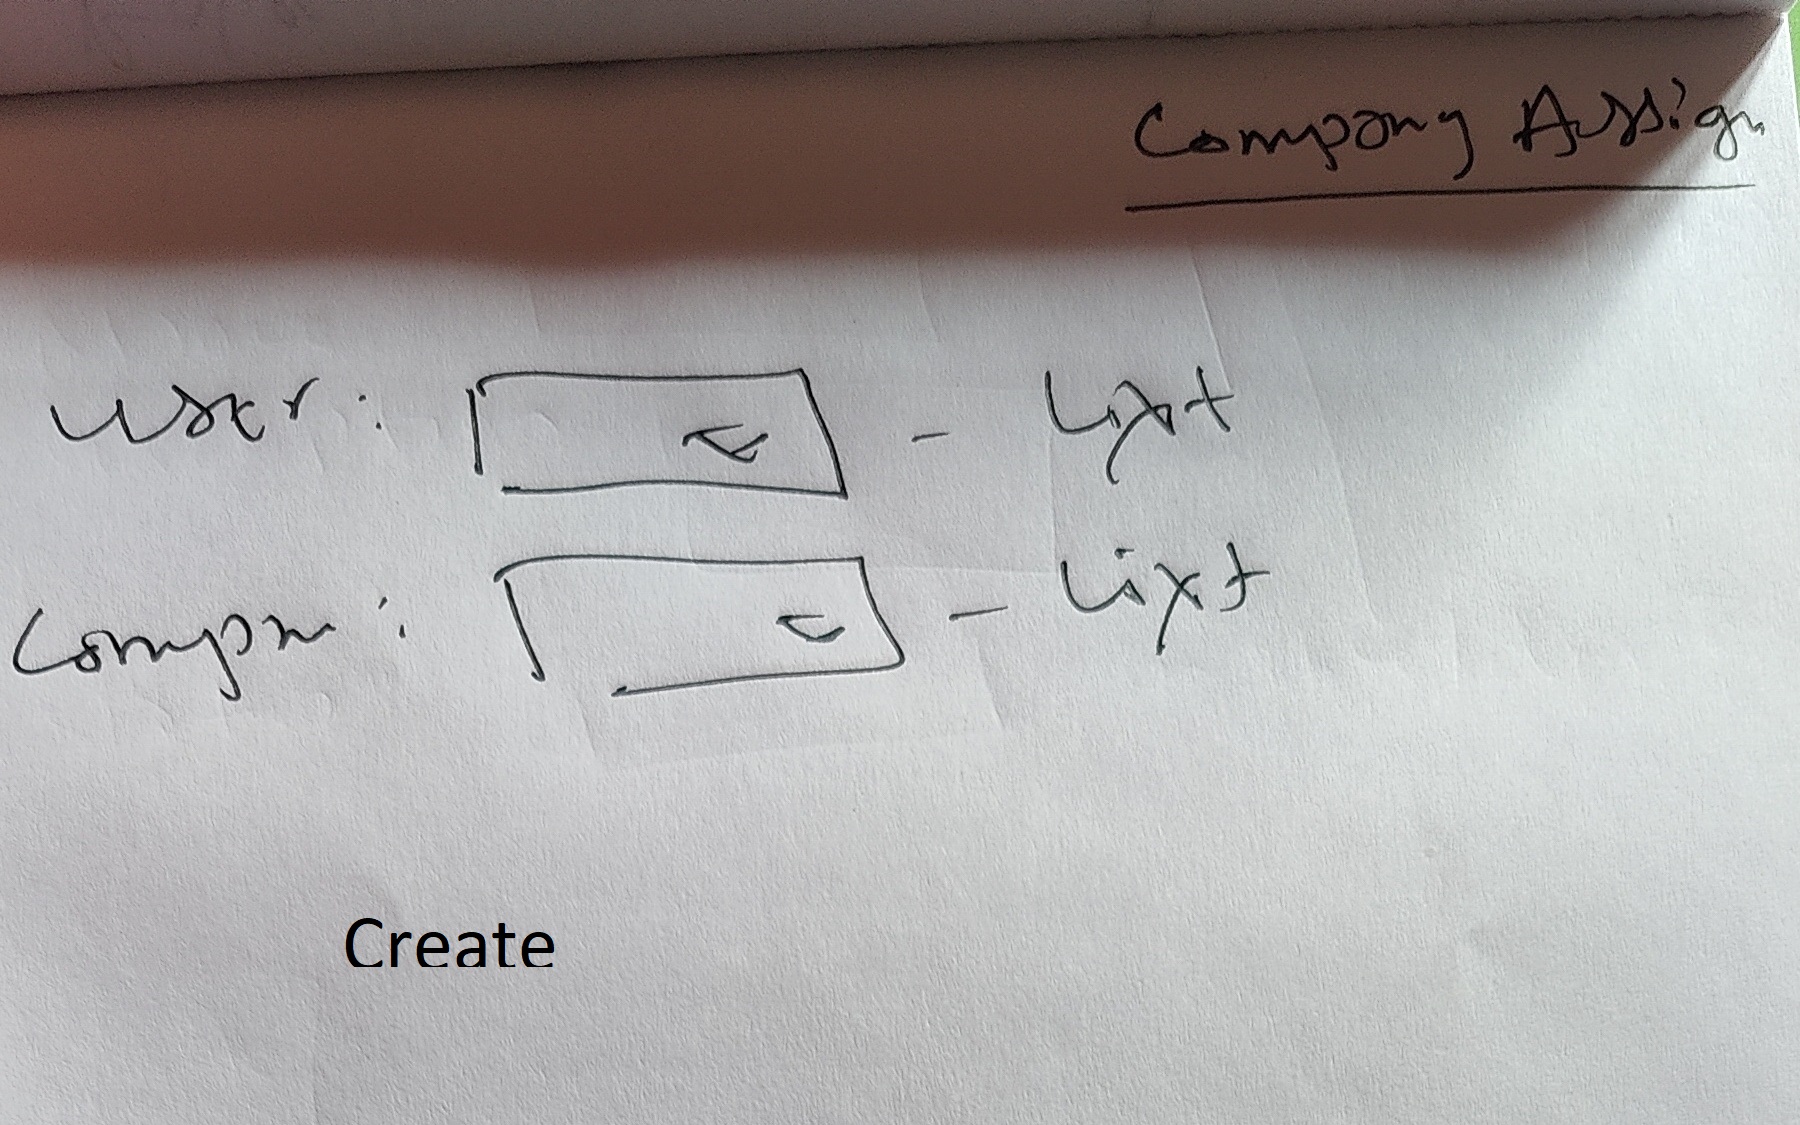 Company Assign
User: - List
Compn: - List
Create